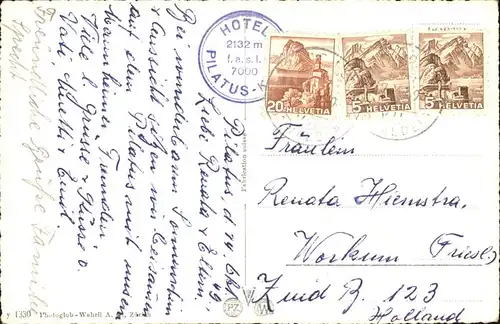 HOTEL
2132 m
f.a.s.l.
7000
PILATUS-K
20 HELVETIA
5 HELVETIA
5 HELVETIA
Pilatus, d 24. Okt.
49.
Liebe Renata & Eltern.
Bei wunderbarem Sonnenschein
& Aussicht sitzen wir beisammen
auf dem Pilatus mit unsern
Mannheimer Freunden
Viele l. Grüsse & Küsse v.
Vati, Mutti & Emil.
Freundliche Grüsse Familie
Fräulein
Renata Hiemstra.
Workum (Friesl.)
Zuid B. 123
Holland
y 1330 Photoglob-Wehrli A. Zürich
Fabrication suisse
PZ W